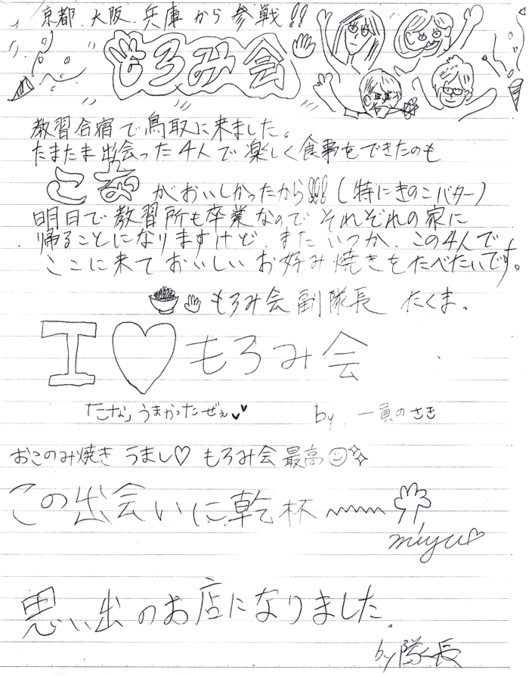 京都、大阪、兵庫から参戦!!
もろみ会
教習合宿で鳥取に来ました。
たまたま出会った4人で楽しく食事をできたのも
こながおいしかったから!!!(特にきのこバター)
明日で教習所も卒業なのでそれぞれの家に
帰ることになりますけど、またいつか、この4人で
ここに来ておいしいお好み焼きをたべたいです。
もろみ会 副隊長 たくま。
I♡もろみ会
「こな」うまかったぜぇ by 一員のさき
おこのみ焼き うまし♡ もろみ会 最高
この出会いに乾杯
miyu♡
思い出のお店になりました。
by 隊長